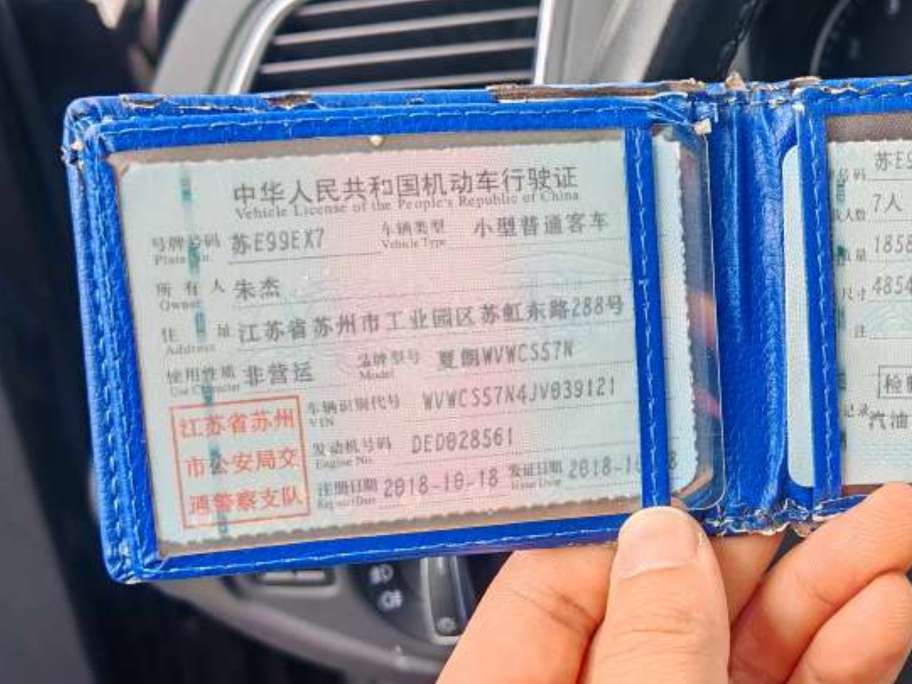 中华人民共和国机动车行驶证
Vehicle License of the People's Republic of China
号牌号码 苏E99EX7 车辆类型 小型普通客车
Plate No. Vehicle Type
所有人 朱杰
Owner
住址 江苏省苏州市工业园区苏虹东路288号
Address
使用性质 非营运 品牌型号 夏朗WVWCS57N
Use Character Model
车辆识别代号 WVWCS57N4JV039121
VIN
发动机号码 DED028561
Engine No.
注册日期 2018-10-18 发证日期 2018-1
Register Date Issue Date
江苏省苏州
市公安局交
通警察支队
苏E9
7人
1858
尺寸 4854
注
检
记录
汽油